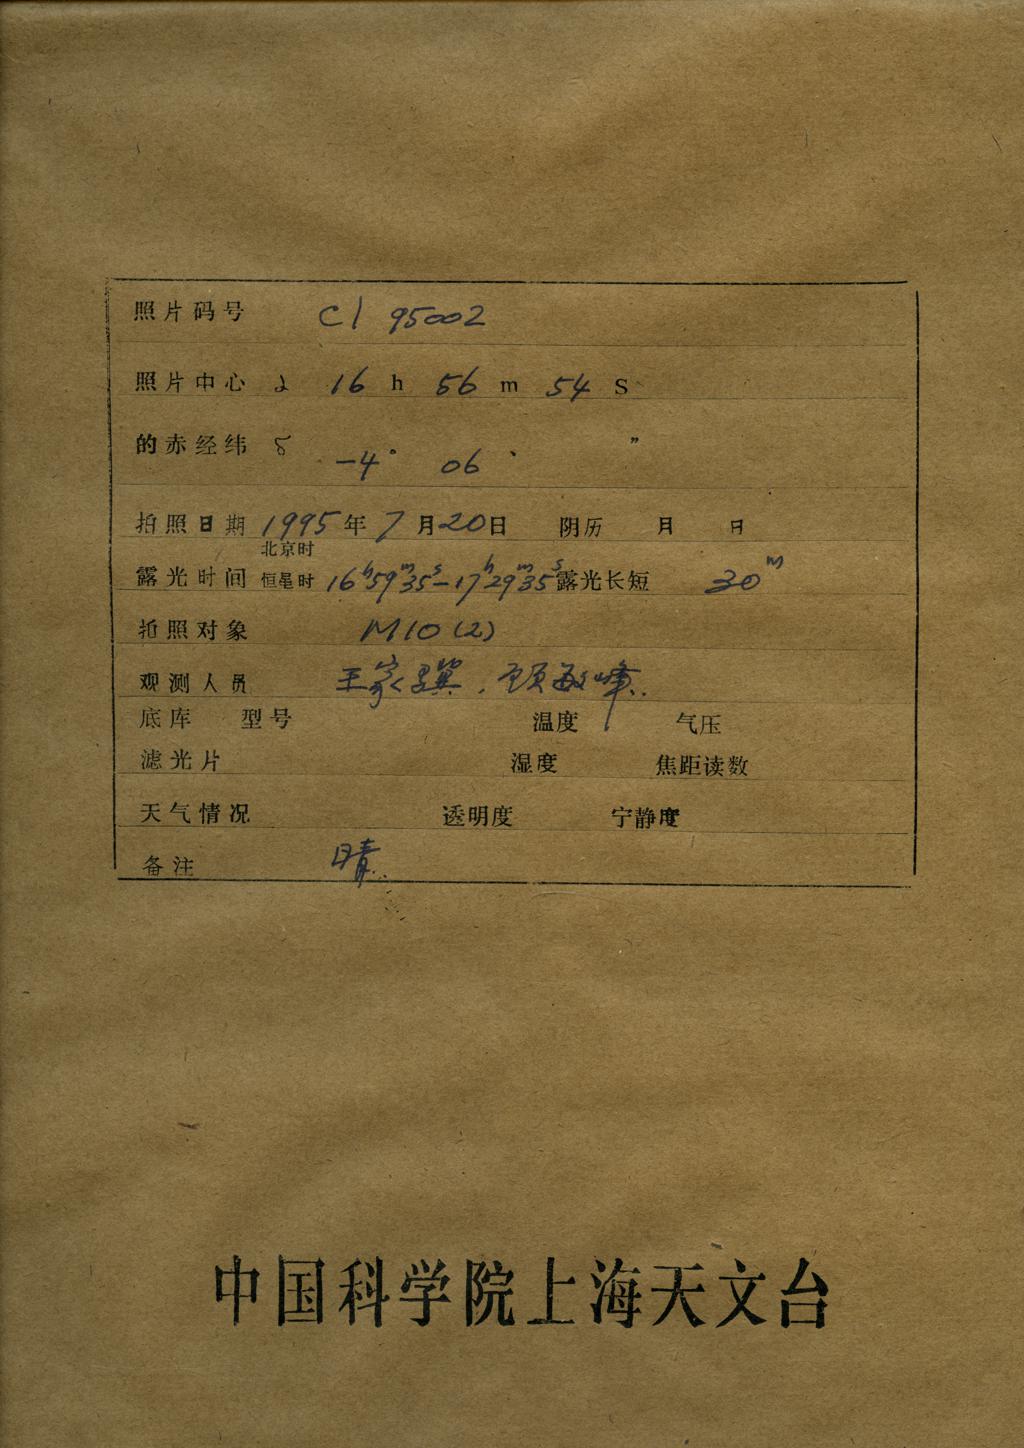 照片码号 Cl 95002
照片中心 α 16 h 56 m 54 S
的赤经纬 δ -4° 06′ ″
拍照日期 1995年7月20日 阴历 月 日
北京时
露光时间 恒星时 16h59m35s-17h29m35s 露光长短 30m
拍照对象 M10(2)
观测人员 王家骥、顾敏峰
底库 型号 温度 气压
滤光片 湿度 焦距读数
天气情况 透明度 宁静度
备注 晴
中国科学院上海天文台